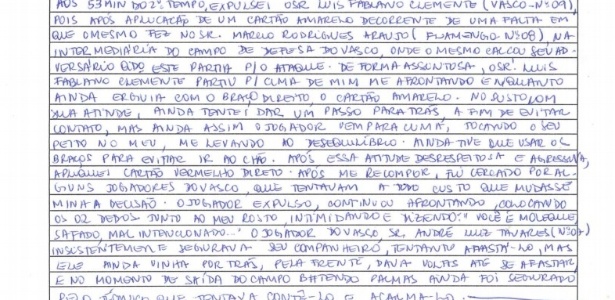 AOS 53 MIN DO 2º TEMPO, EXPULSEI O SR. LUIS FABIANO CLEMENTE (VASCO-Nº 09),
POIS APÓS APLICAÇÃO DE UM CARTÃO AMARELO DECORRENTE DE UMA FALTA EM
QUE O MESMO FEZ NO SR. MARCIO RODRIGUES ARAUJO (FLAMENGO Nº 08), NA
INTERMEDIÁRIA DO CAMPO DE DEFESA DO VASCO, ONDE O MESMO CALÇOU SEU AD-
VERSÁRIO QDO ESTE PARTIA P/O ATAQUE. DE FORMA ACINTOSA, O SR. LUIS
FABIANO CLEMENTE PARTIU P/ CIMA DE MIM ME AFRONTANDO ENQUANTO
AINDA ERGUIA COM O BRAÇO DIREITO O CARTÃO AMARELO. NO SUSTO COM
SUA ATITUDE, AINDA TENTEI DAR UM PASSO PARA TRÁS, A FIM DE EVITAR
CONTATO, MAS AINDA ASSIM O JOGADOR VEM PARA CIMA, TOCANDO O SEU
PEITO NO MEU, ME LEVANDO AO DESEQUILÍBRIO. AINDA TIVE QUE USAR OS
BRAÇOS PARA EVITAR IR AO CHÃO. APÓS ESSA ATITUDE DESRESPEITOSA E AGRESSIVA,
APLIQUEI CARTÃO VERMELHO DIRETO. APÓS ME RECOMPOR, FUI CERCADO POR AL-
GUNS JOGADORES DO VASCO, QUE TENTAVAM A TODO CUSTO QUE MUDASSE
MINHA DECISÃO. O JOGADOR EXPULSO, CONTINUOU AFRONTANDO, COLOCANDO
OS 02 DEDOS JUNTO AO MEU ROSTO, INTIMIDANDO E DIZENTO: "VOCÊ É MOLEQUE
SAFADO, MAL INTENCIONADO..." O JOGADOR DO VASCO, SR. ANDRÉ LUIZ TAVARES (Nº 07)
INSISTENTEMENTE SEGURAVA SEU COMPANHEIRO, TENTANTO AFASTÁ-LO, MAS
ELE AINDA VINHA POR TRÁS, PELA FRENTE, DAVA VOLTAS ATÉ SE AFASTAR,
E NO MOMENTO DE SAÍDA DO CAMPO BATENDO PALMAS AINDA FOI SEGURADO
PELO TÉCNICO QUE TENTAVA CONTÊ-LO E ACALMÁ-LO.